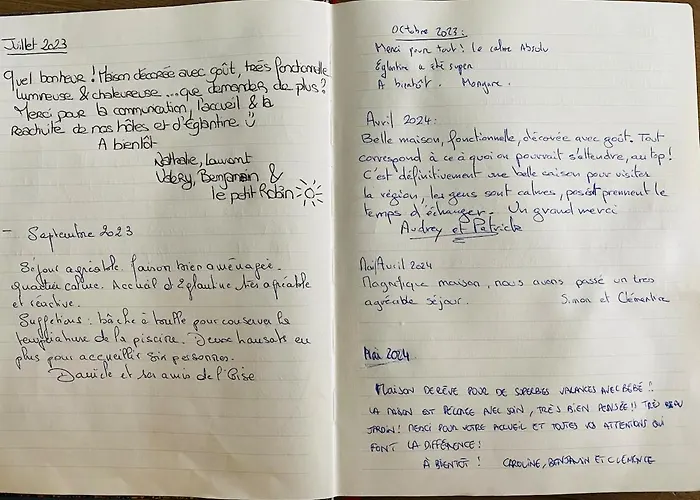 Juillet 2023
Quel bonheur ! Maison décorée avec goût, très fonctionnelle
lumineuse & chaleureuse ... que demander de plus ?
Merci pour la communication, l'accueil & la
réactivité de nos hôtes et d'Églantine
A bientôt
Nathalie, Laurent
Valéry, Benjamin &
le petit Robin
- Septembre 2023
Séjour agréable. Maison bien aménagée.
Quartier calme. Accueil d'Eglantine très agréable
et réactive.
Suggestions : bâche à bulle pour conserver la
température de la piscine. Deux transats en
plus pour accueillir six personnes.
Daniele et ses amis de l'Oise
Octobre 2023 :
Merci pour tout ! Le calme Absolu
Églantine a été super
A bientôt.
Avril 2024 :
Belle maison, fonctionnelle, décorée avec goût. Tout
correspond à ce à quoi on pourrait s'attendre, au top !
C'est définitivement une belle saison pour visiter
la région, les gens sont calmes, posés et prennent le
temps d'échanger. Un grand merci
Audrey et Patrick
Mai/Avril 2024
Magnifique maison, nous avons passé un très
agréable séjour. Simon et Clémentine
Mai 2024
MAISON DE RÊVE POUR DE SUPERBES VACANCES AVEC BÉBÉ !!
LA MAISON EST DÉCORÉE AVEC SOIN, TRÈS BIEN PENSÉE !! TRÈS BEAU
JARDIN ! MERCI POUR VOTRE ACCUEIL ET TOUTES VOS ATTENTIONS QUI
FONT LA DIFFÉRENCE !
À BIENTÔT ! CAROLINE, BENJAMIN ET CLÉMENCE